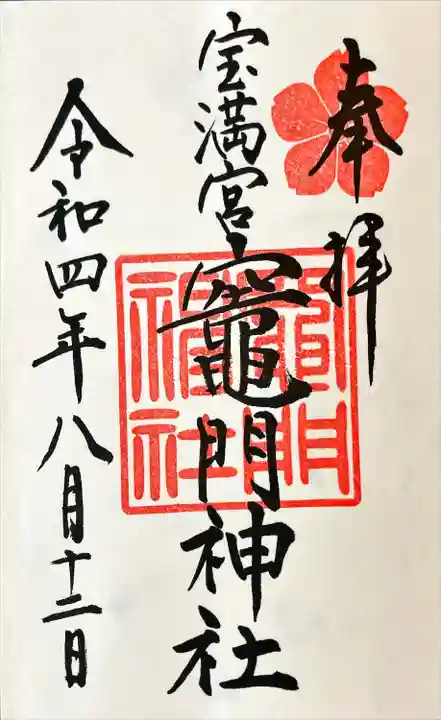 奉拝
宝満宮竈門神社
竈門神社
令和四年八月十二日